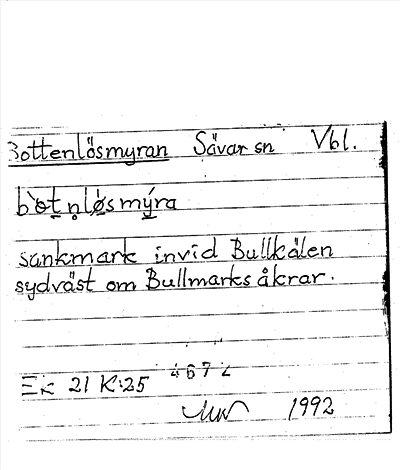 Bottenlösmyran Sävar sn Vbl.
bòtṇløsmýra
sankmark invid Bullkälen
sydväst om Bullmarks åkrar.
4672
Ek 21 K:25
1992